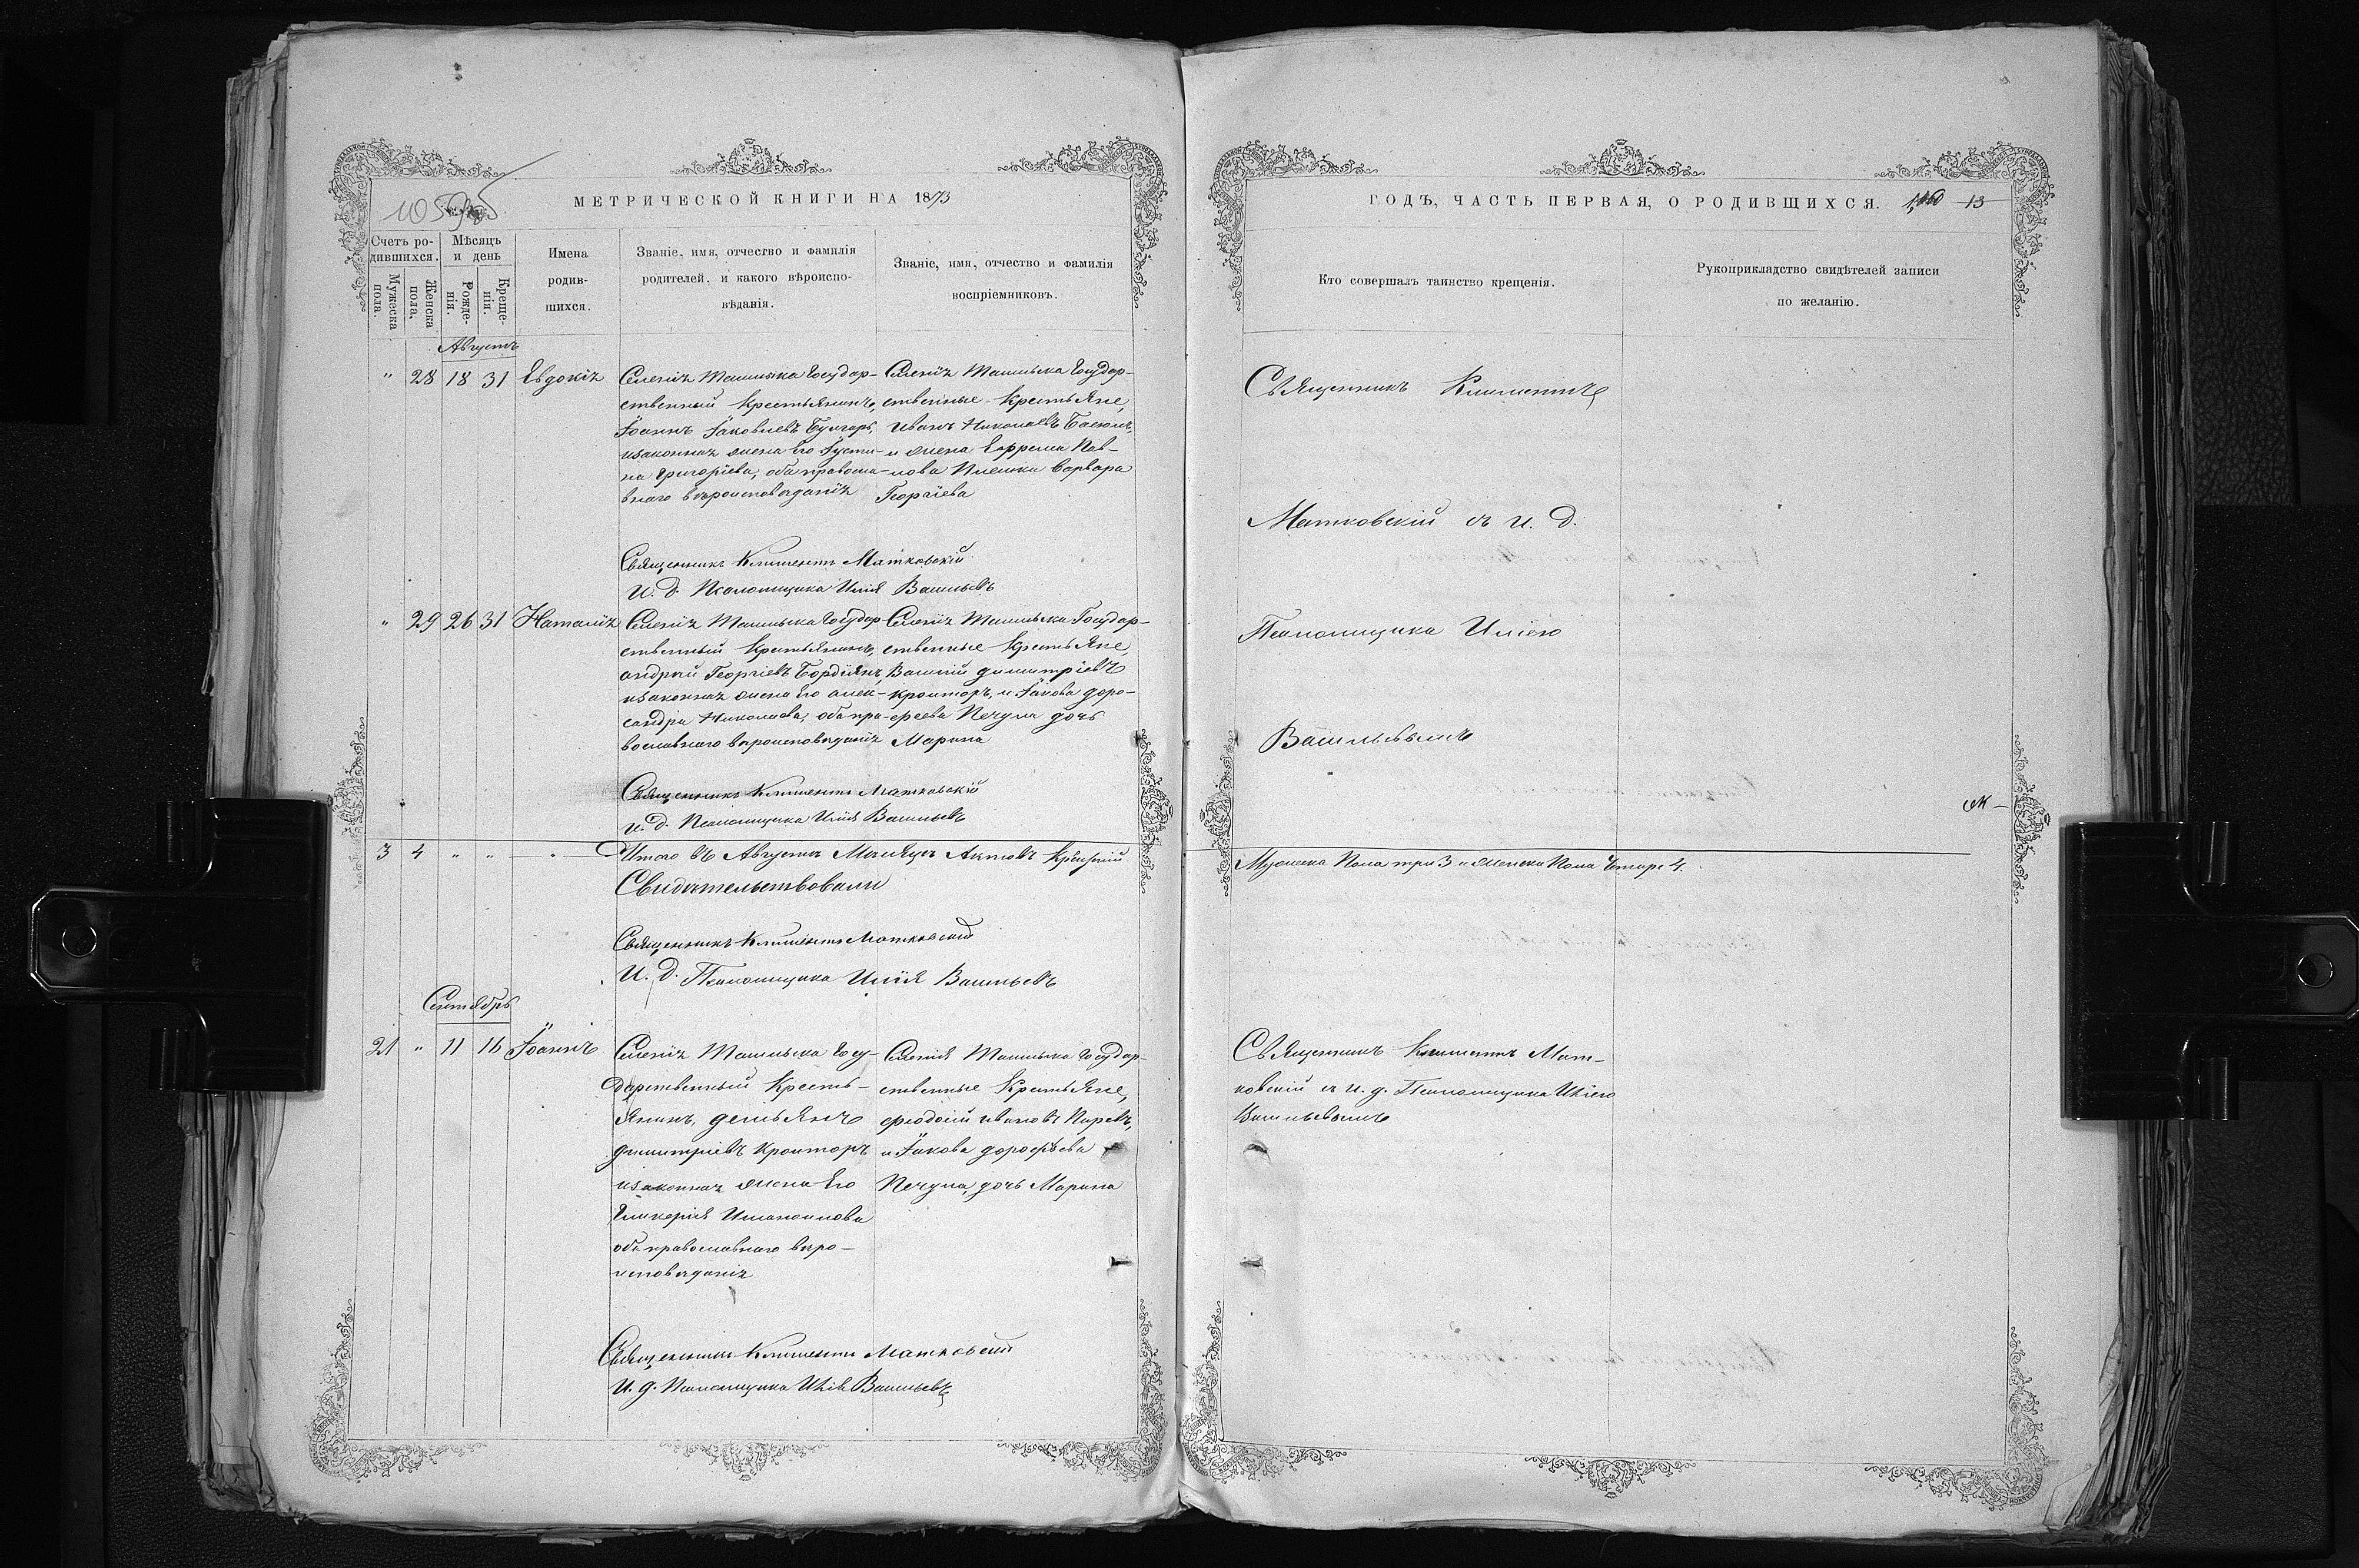 МЕТРИЧЕСКОЙ КНИГИ НА 1873
Счетъ ро-
дившихся.
Мужеска пола.
Женска пола.
Мѣсяцъ и день
Рожде-
нія.
Креще-
нія.
Имена
родив-
шихся.
Званіе, имя, отчество и фамилія
родителей, и какого вѣроиспо-
вѣданія.
Званіе, имя, отчество и фамилія
воспріемниковъ.
Августъ
" 28 18 31 Евдокія
Селенія Ташлыка Государ-
ственный Крестьянинъ,
Іоаннъ Іаковлевъ Булгаръ,
изаконная жена Его Іусти-
на Григоріева, оба правосла-
внаго вѣроисповѣданія
Селенія Ташлыка Государ-
ственные Крестьяне,
Иванъ Николаевъ
и жена Ефрема Пав-
лова Варвара
Георгіева
Священникъ Климентъ Матковскій
И. д. Псаломщика Илія Васильевъ
" 29 26 31 Наталія
Селенія Ташлыка Государ-
ственный Крестьянинъ,
андрей Георгіевъ
изаконная жена Его алек-
сандра Николаева, оба пра-
вославнаго вѣроисповѣданія
Селенія Ташлыка Государ-
ственные Крестьяне,
Василій димитріевъ
Кроиторъ, и Іакова доро-
феева Пегула дочь
Марина
Священникъ Климентъ Матковскій
И. д. Псаломщика Илія Васильевъ
3 4 " " "
Итого въ Августѣ Мѣсяцѣ Актовъ Крещеній
Свидѣтельствовали
Священникъ Климентъ Матковскій
И. д. Псаломщика Илія Васильевъ
Сентябрь
21 " 11 16 Іоаннъ
Селенія Ташлыка Госу-
дарственный Кресть-
янинъ, демьянъ
димитріевъ Кроиторъ
изаконная жена Его
Гликерія
оба православнаго вѣро-
исповѣданія
Селенія Ташлыка Государ-
ственные Крестьяне,
ивановъ
и Іакова дорофѣева
Пегула, дочь Марина
Священникъ Климентъ Матковскій
И. д. Псаломщика Илія Васильевъ
ГОДЪ, ЧАСТЬ ПЕРВАЯ, О РОДИВШИХСЯ. 13
Кто совершалъ таинство крещенія.
Рукоприкладство свидѣтелей записи
по желанію.
Священникъ Климентъ
Матковскій съ и. д.
Псаломщика Иліею
Васильевымъ
Мужеска Пола три 3 и женска Пола Четыре 4.
Священникъ Климентъ Мат-
ковскій съ и. д. Псаломщика Иліею
Васильевымъ